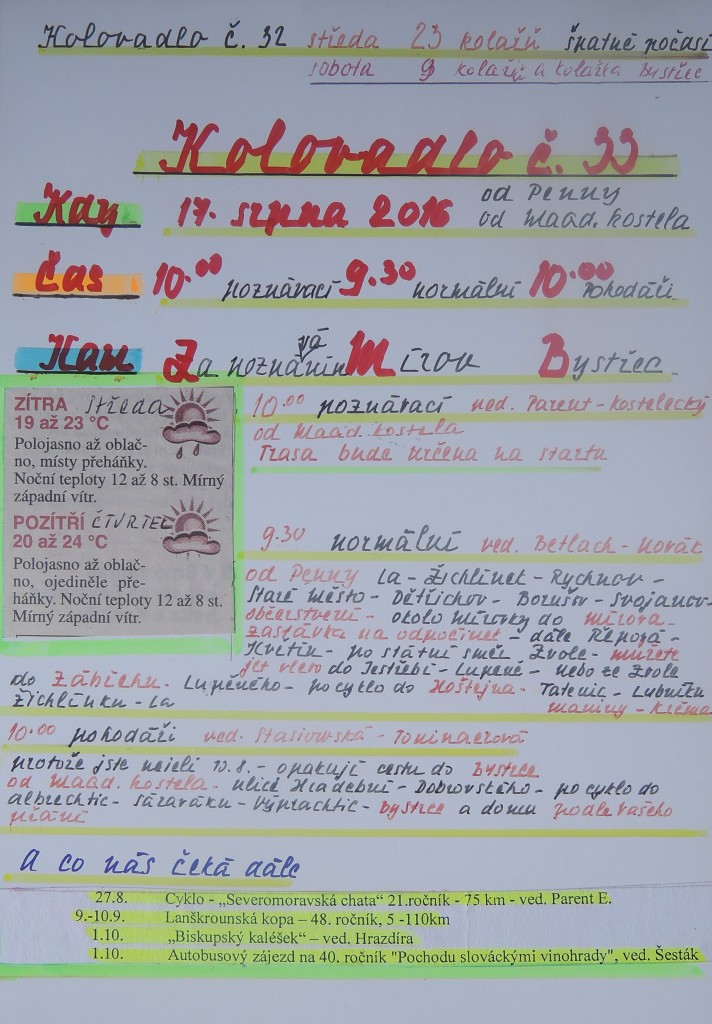 Kolovadlo č. 32 středa 23 kolařů špatné počasí
sobota 9 kolařů a kolařka Bystřec
Kolovadlo č. 33
Kdy 17. srpna 2016 od Penny
od Maad. kostela
Čas 10.00 poznávací 9.30 normální 10.00 Pohodáři
Kam Za poznáním Mírov Bystřec
ZÍTRA středa
19 až 23 °C
Polojasno až oblač-
no, místy přeháňky.
Noční teploty 12 až 8 st. Mírný
západní vítr.
POZÍTŘÍ ČTVRTEK
20 až 24 °C
Polojasno až oblač-
no, ojediněle pře-
háňky. Noční teploty 12 až 8 st.
Mírný západní vítr.
10.00 poznávací ved. Parent - Kostelecký
od Maad. kostela
Trasa bude určena na startu
9.30 normální ved. Betlach - Novák
od Penny La - Žichlínek - Rychnov -
Staré Město - Dětřichov - Borušov - Svojanov -
občerstvení - okolo Mírovky do Mírova -
zastávka na odpočinek - dále Řepová -
Květín - po státní směr Zvole - můžete
jet vlevo do Jestřebí - Lupěné - nebo ze Zvole
do Zábřehu - Lupěného - po cyklo do Hoštejna - Tatenic - Lubníku
Žichlínku - La
10.00 pohodáři ved. Stasiowská -
protože jste nejeli 10.8. - opakují cestu do Bystřce
od Maad. kostela - ulicí Hradební - Dobrovského - po cyklo do
Albrechtic - Sázaváku - Výprachtic - Bystřec a domů podle vašeho
přání
A co nás čeká dále
27.8. Cyklo - „Severomoravská chata“ 21.ročník - 75 km - ved. Parent E.
9.-10.9. Lanškrounská kopa – 48. ročník, 5 -110km
1.10. „Biskupský kaléšek“ – ved. Hrazdíra
1.10. Autobusový zájezd na 40. ročník "Pochodu slováckými vinohrady", ved. Šesták